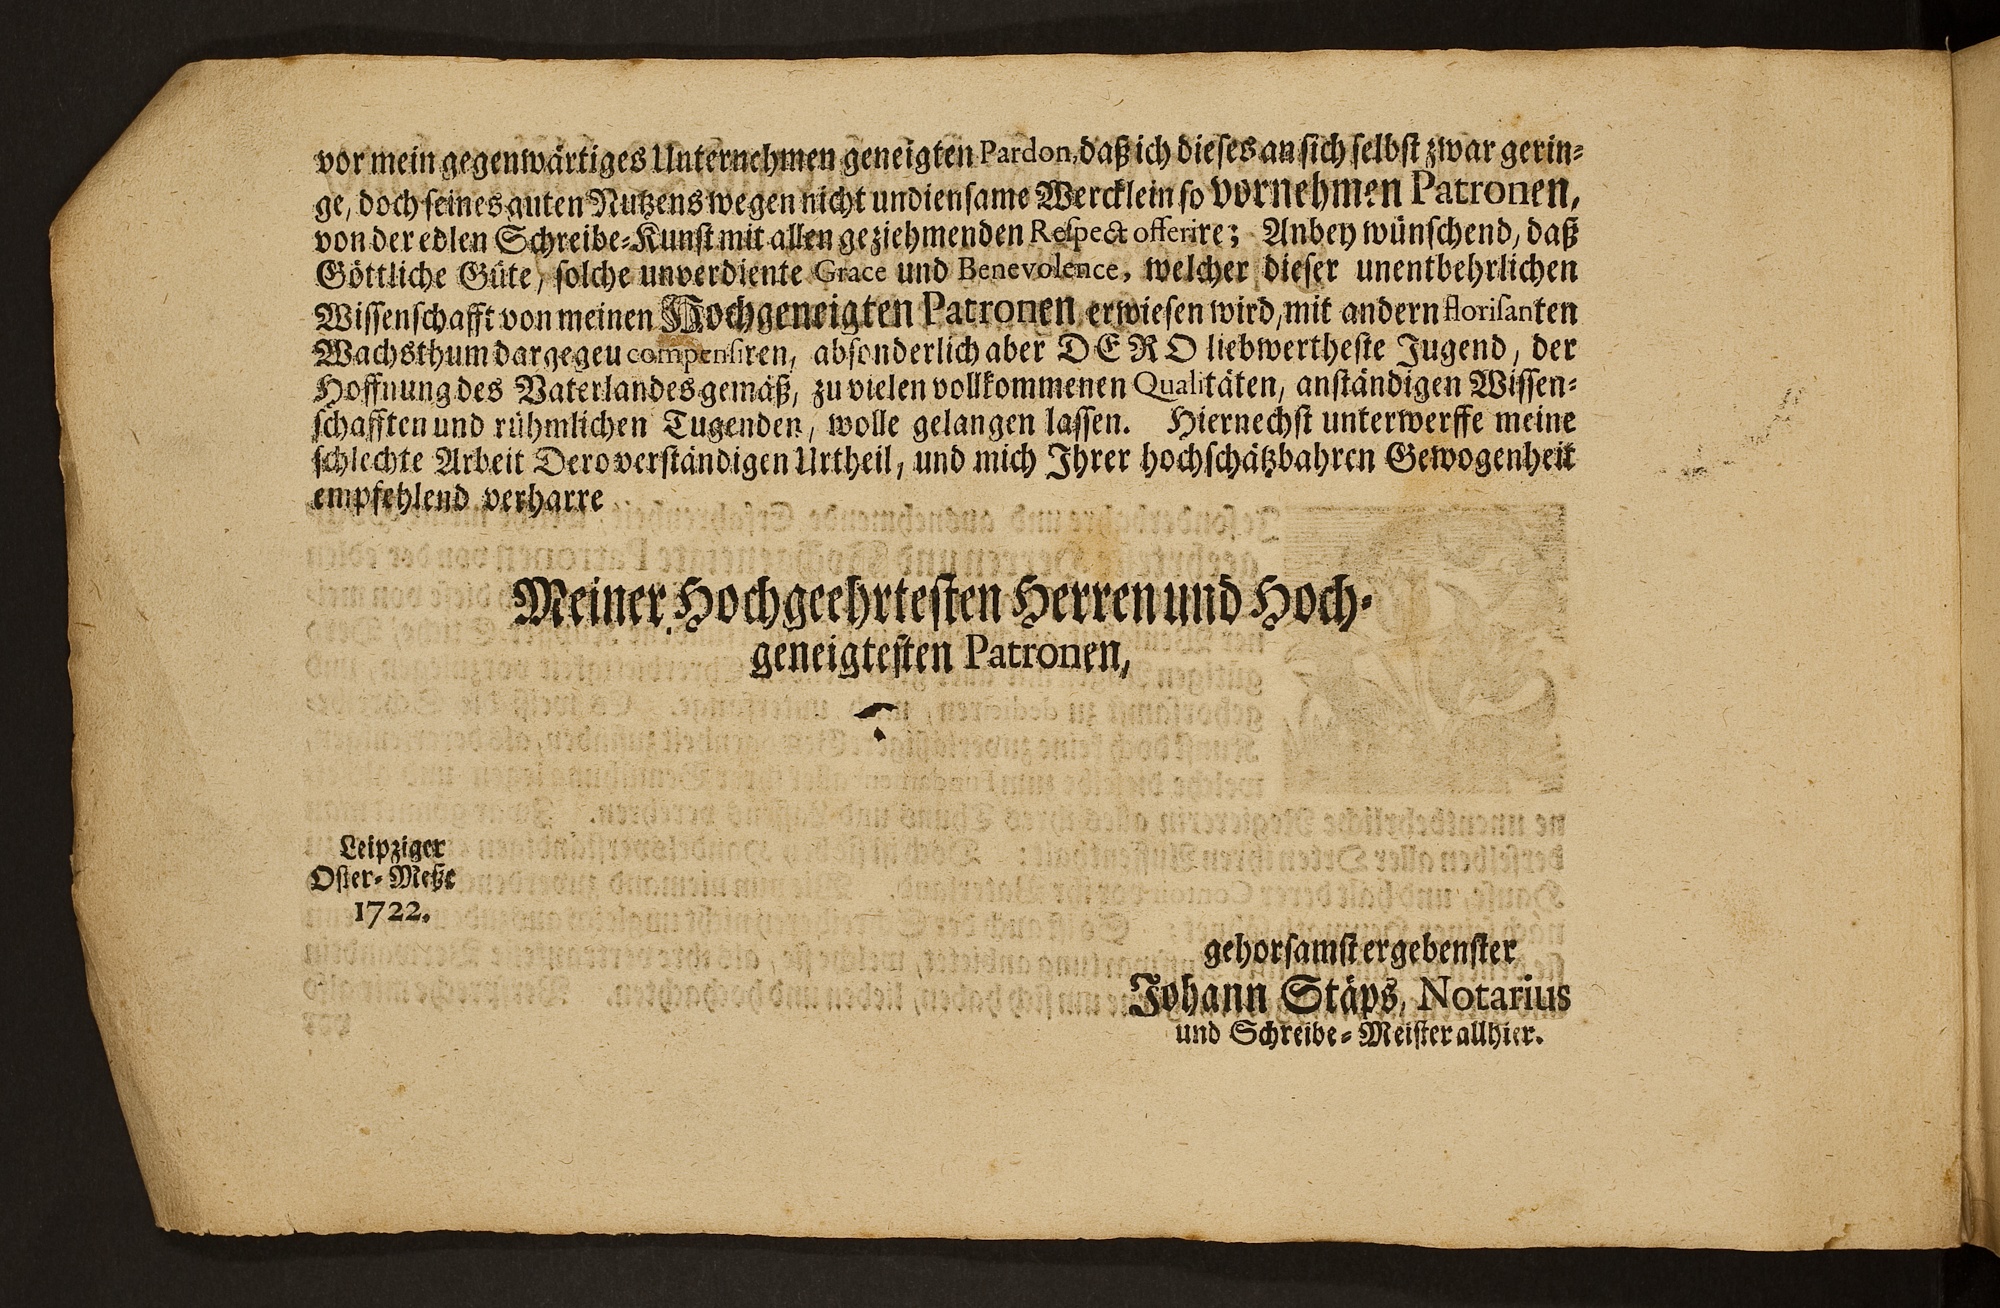 vor mein gegenwärtiges Unternehmen geneigten Pardon, daß ich dieses an sich selbst zwar gerin-
ge, doch seines guten Nutzens wegen nicht undiensame Wercklein so vornehmen Patronen,
von der edlen Schreibe-Kunst mit allen geziehmenden Respect offerire; Anbey wünschend, daß
Göttliche Güte, solche unverdiente Grace und Benevolence, welcher dieser unentbehrlichen
Wissenschafft von meinen Hochgeneigten Patronen erwiesen wird, mit andern florisanten
Wachsthum dargegeu compensiren, absonderlich aber DERO liebwertheste Jugend, der
Hoffnung des Vaterlandes gemäß, zu vielen vollkommenen Qualitäten, anständigen Wissen-
schafften und rühmlichen Tugenden, wolle gelangen lassen. Hiernechst unterwerffe meine
schlechte Arbeit Dero verständigen Urtheil, und mich Ihrer hochschätzbahren Gewogenheit
empfehlend verharre
Meiner Hochgeehrtesten Herren und Hoch-
geneigtesten Patronen,
Leipziger
Oster-Meße
1722.
gehorsamst ergebenster
Johann Stäps, Notarius
und Schreibe-Meister allhier.